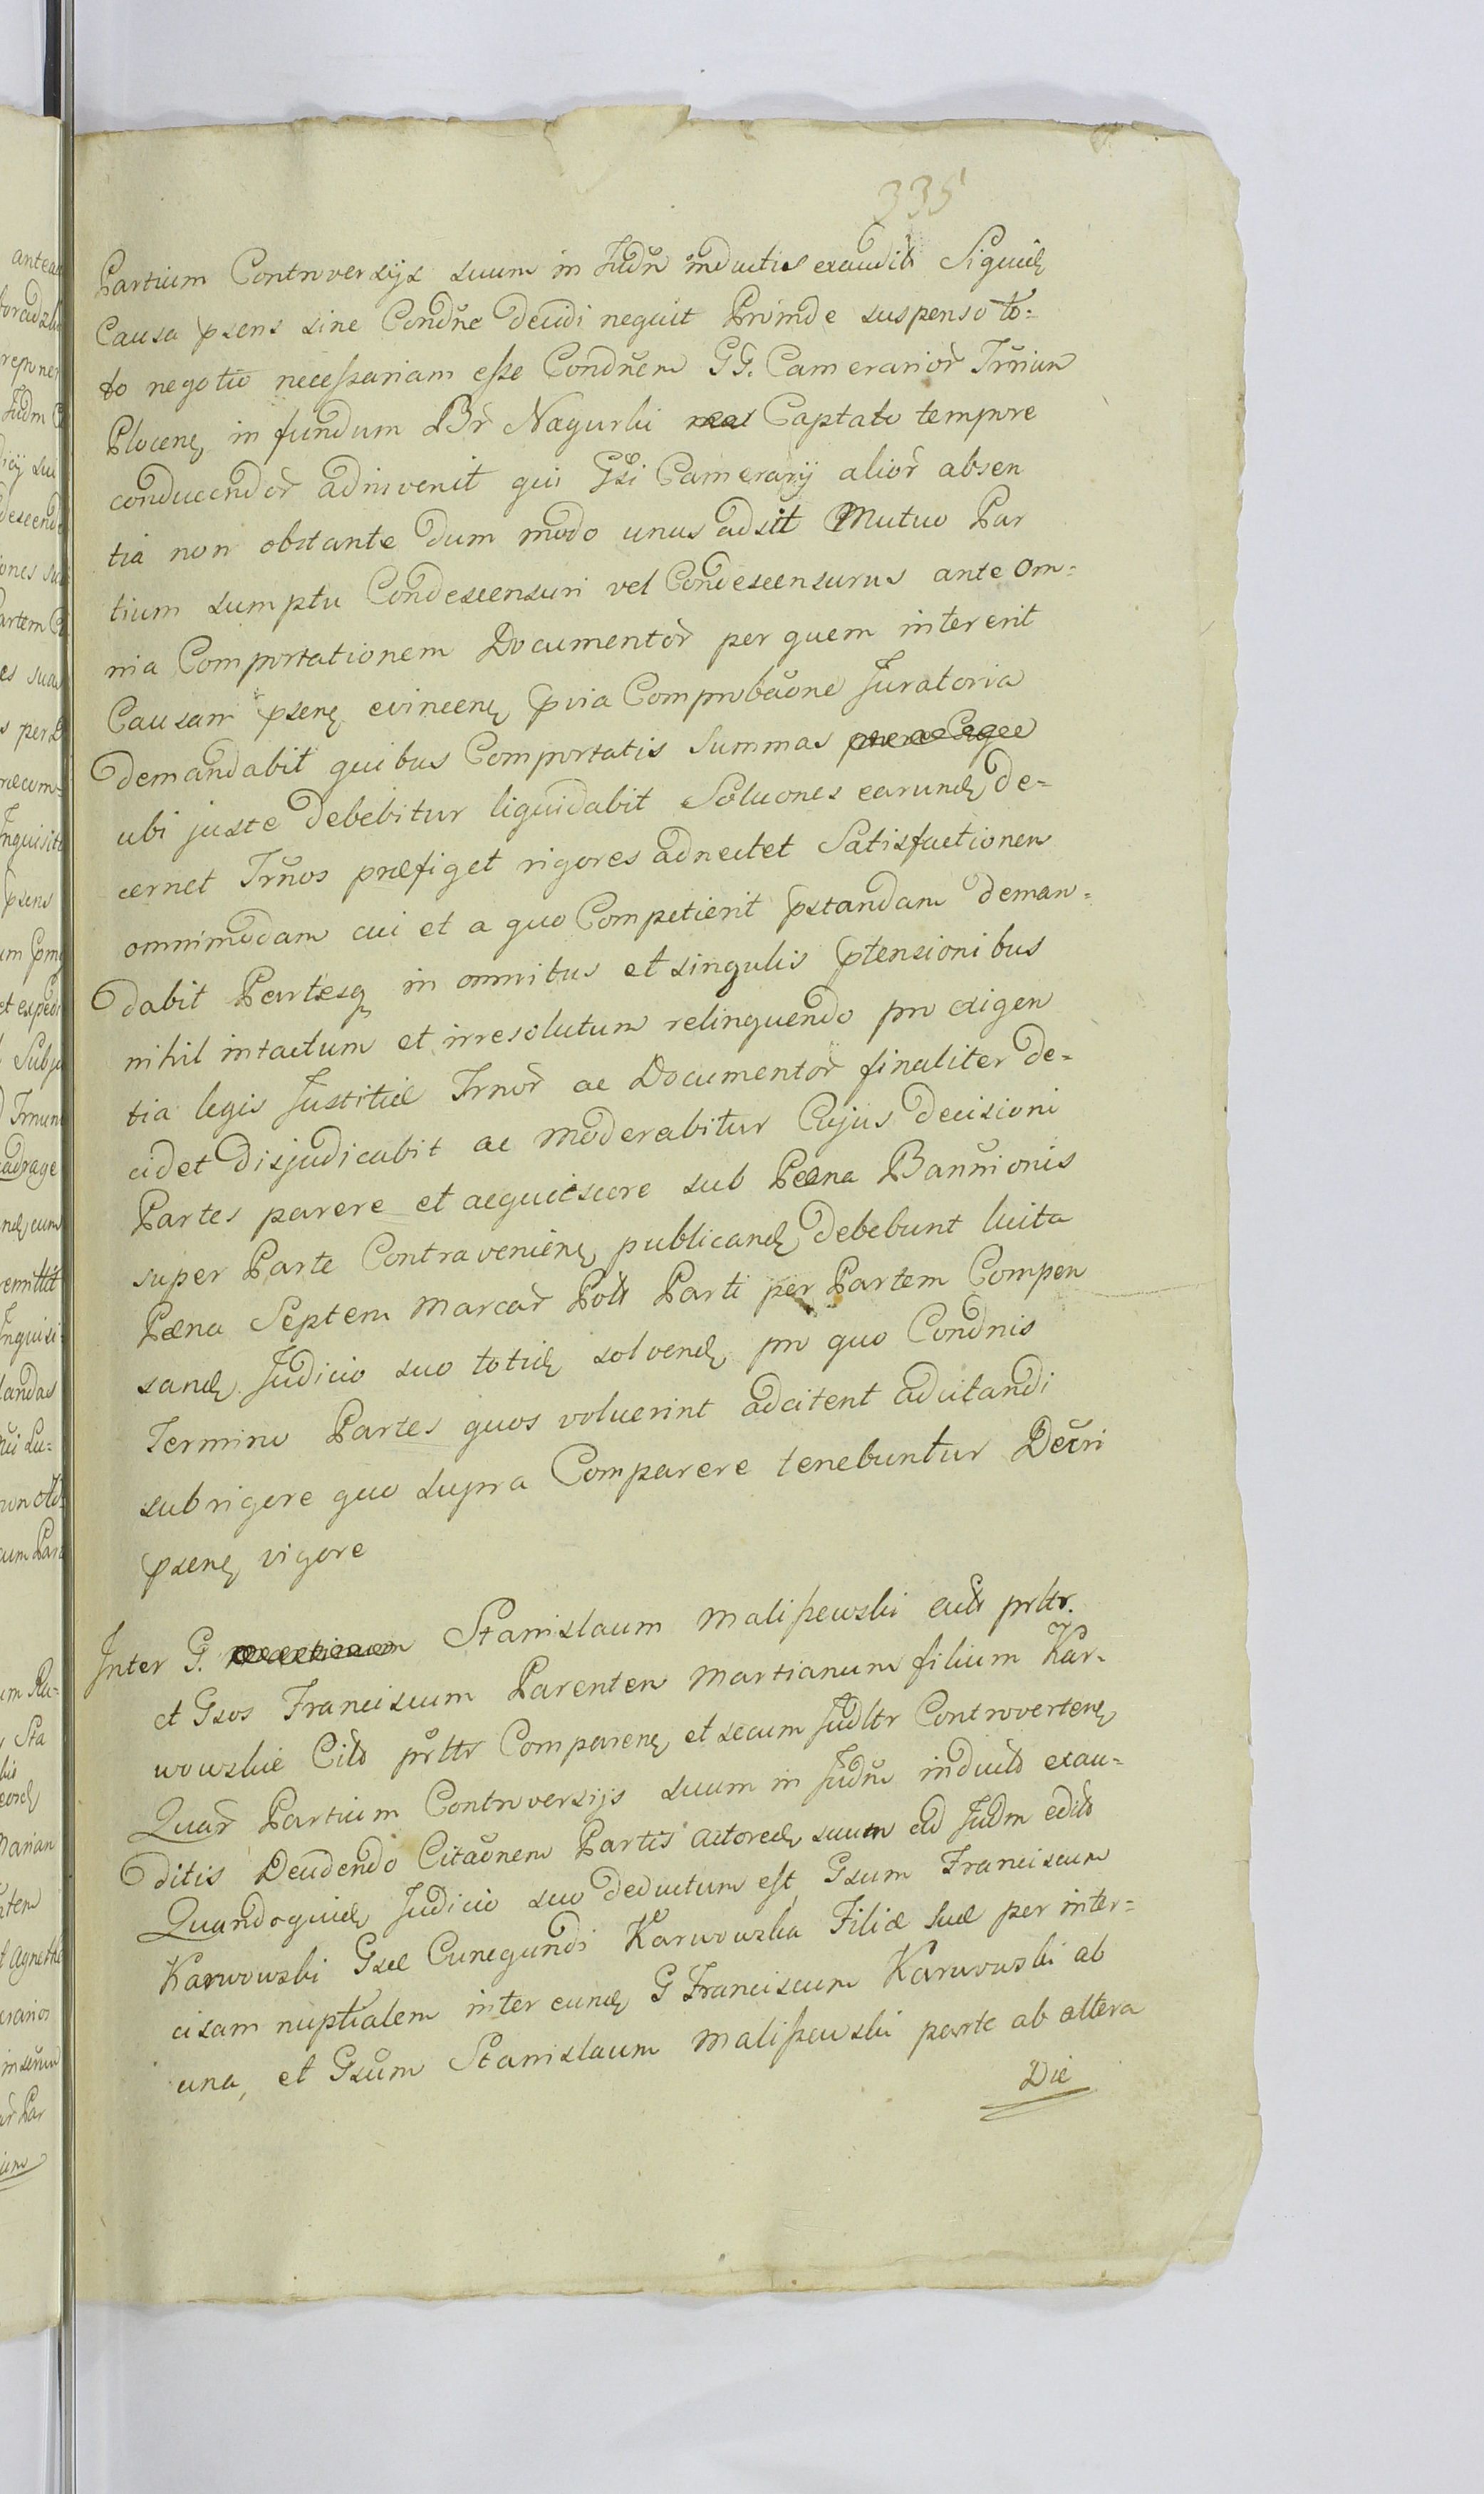 335
Partium Controversijs suum in Judm inductis exauditis Siquid
Causa psens sine Condne decidi nequit Proinde suspenso to=
to negotio necessariam esse Condnem GG. Camerarior Trnium
Plocen in fundum Br Nagurki Captato tempore
conducendor adinvenit qui Gsi Camerarij alior absen
tia non obstante dum modo unus adsit Mutuo Par
tium sumptu Condescensuri vel Condescensurus ante om=
nia Comportationem Documentor per quem intererit
Causam psen evincen pvia Comprobaone Juratoria
demandabit quibus Comportatis Summas
ubi juste debebitur liquidabit Soluones earund de=
cernet Trnos præfiget rigores adnectet Satisfactionem
omnimodam cui et a quo Competierit pstandam deman=
dabit Partesq in omnibus et singulis ptensionibus
nihil intactum et irresolutum relinquendo pro exigen
tia legis Justitiæ Trnor ac Documentor finaliter de=
cidet disjudicabit ac moderabitur Cujus decisioni
Partes parere et acquiescere sub Pæna Bannionis
super Parte Contravenien publicand debebunt luita
Pæna Septem Marcar Pols Parti per Partem Compen
sand Judicio suo totid solvend pro quo Condnis
Termino Partes quos voluerint adcitent adcitandi
sub rigore quo supra Comparere tenebuntur Decri
psen vigore
Inter G. Stanislaum Maliszewski prltr.
et Gsos Franciscum Parentem Martianum filium Kar=
wowskie Cits prltr Comparen et secum Judltr Controverten
Quar Partium Controversijs suum in Judm induits exau=
ditis Decidendo Citaonem Partis actoreæ suum ad Judm edits
Quandoquid Judicio suo deductum est Gsum Franciscum
Karwowski Gsæ Cunegundi Karwowska Filiæ suæ per inter=
cisam nuptialem inter eund G Franciscum Karwowski ab
una, et Gsum Stanislaum Maliszewski parte ab altera
Die